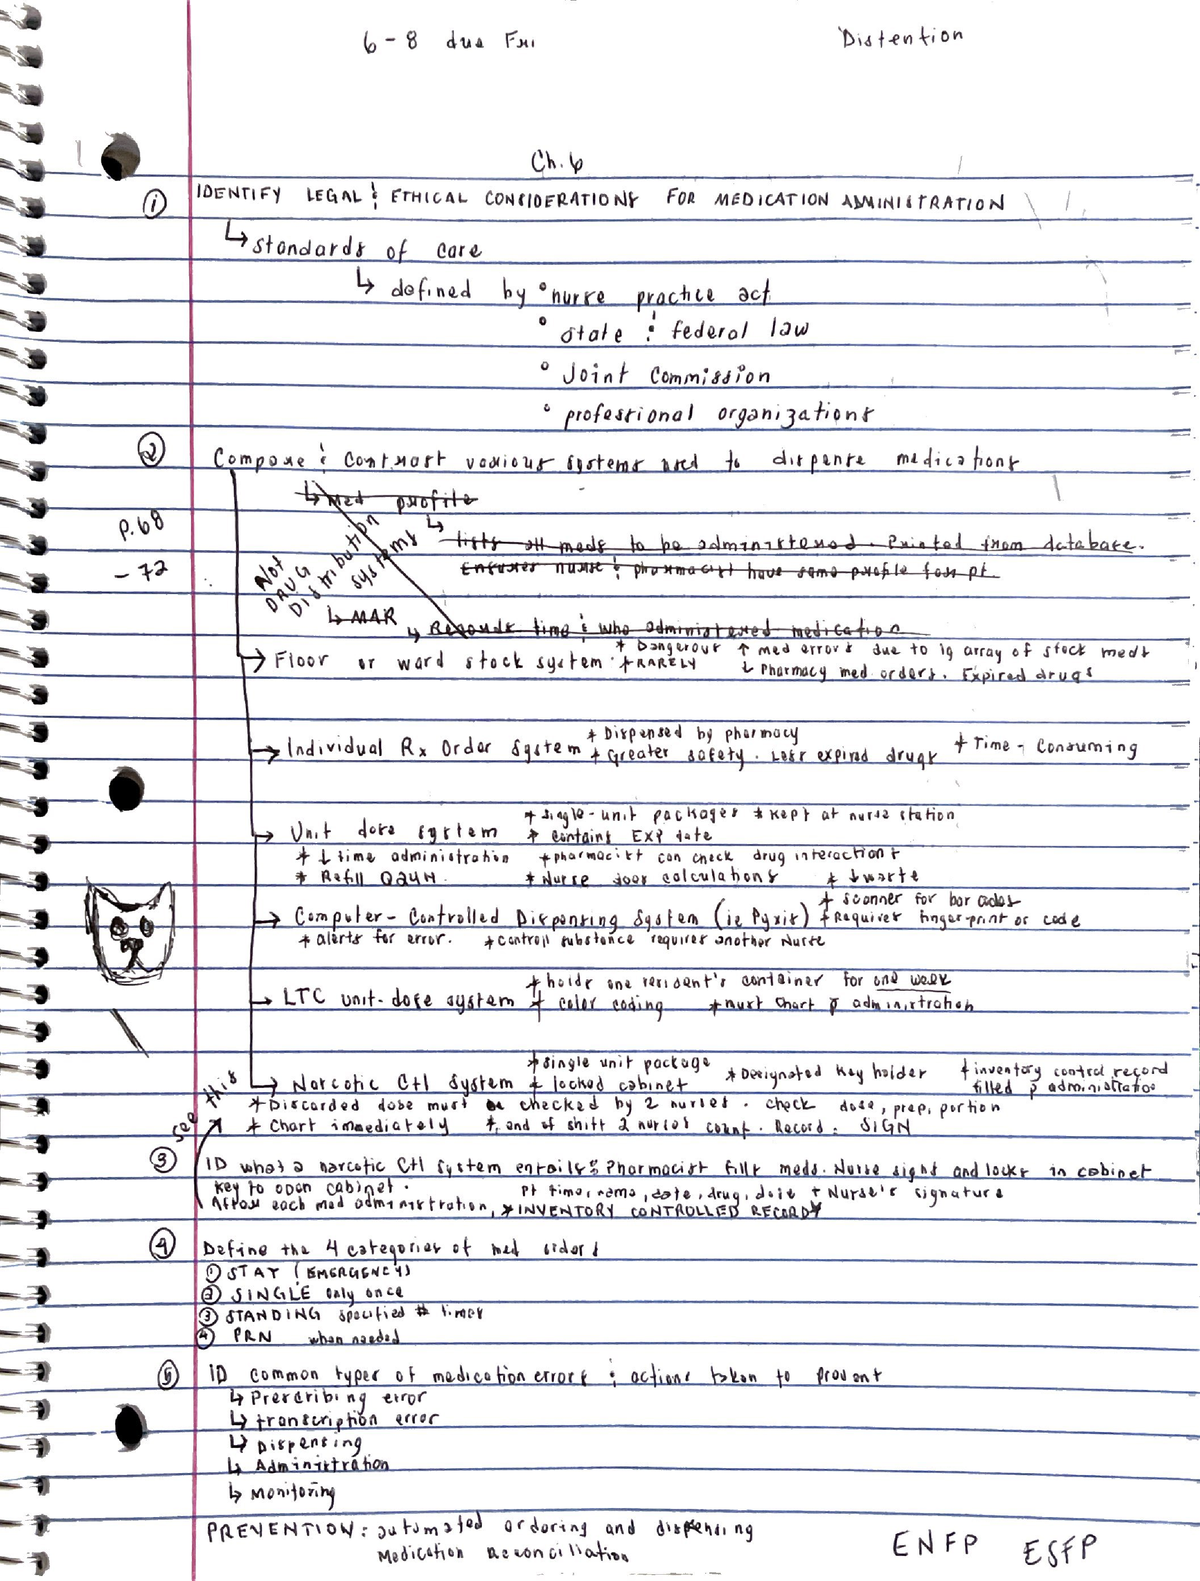 6-8 due Fri
Distention
Ch. 6
① IDENTIFY LEGAL & ETHICAL CONSIDERATIONS FOR MEDICATION ADMINISTRATION
↳ standards of care
↳ defined by ° nurse practice act
° state & federal law
° Joint Commission
° professional organizations
② Compare & Contrast various systems used to dispense medications
P. 68 - 72
↳ Med profile
↳ lists all meds to be administered. Printed from database.
Ensures nurse & pharmacist have same profile for pt.
Not DRUG Distribution systems
↳ MAR
↳ Records time & who administered medication
→ Floor or ward stock system * Dangerous ↑ med errors due to lg array of stock meds
* RARELY ↓ Pharmacy med orders. Expired drugs
→ Individual Rx Order System * Dispensed by pharmacy
* Greater safety. Less expired drugs * Time-Consuming
→ Unit dose system * single-unit packages * Kept at nurse station
* contains EXP date
* ↓ time administration * pharmacist can check drug interactions
* Refill Q24H. * Nurse does calculations * ↓ waste
→ Computer-Controlled Dispensing System (ie Pyxis) * scanner for bar codes
* Requires fingerprint or code
* alerts for error. * control substance requires another Nurse
→ LTC unit-dose system * holds one resident's container for one week
* color coding * must chart p administration
→ Narcotic Ctl System * single unit package * Designated key holder * inventory control record
* locked cabinet filled p administration
* Discarded dose must be checked by 2 nurses. check dose, prep, portion
* Chart immediately * end of shift 2 nurses count. Record & SIGN
see this
③ ID what a narcotic Ctl System entails: Pharmacist fills meds. Nurse signs and locks in cabinet
Key to open cabinet. pt time, name, date, drug, dose + Nurse's signature
After each med administration, *INVENTORY CONTROLLED RECORD*
④ Define the 4 categories of med orders
① STAT (EMERGENCY)
② SINGLE only once
③ STANDING specified # times
④ PRN when needed
⑤ ID common types of medication errors & actions taken to prevent
↳ Prescribing error
↳ transcription error
↳ Dispensing
↳ Administration
↳ monitoring
PREVENTION: automated ordering and dispensing
Medication Reconciliation
ENFP ESFP